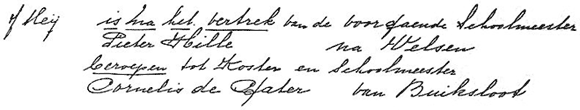 1 Meij is na het vertrek van de voorgaende Schoolmeester
Pieter Hille na Velsen
beroepen tot Koster en Schoolmeester
Cornelis de Pater van Buiksloot